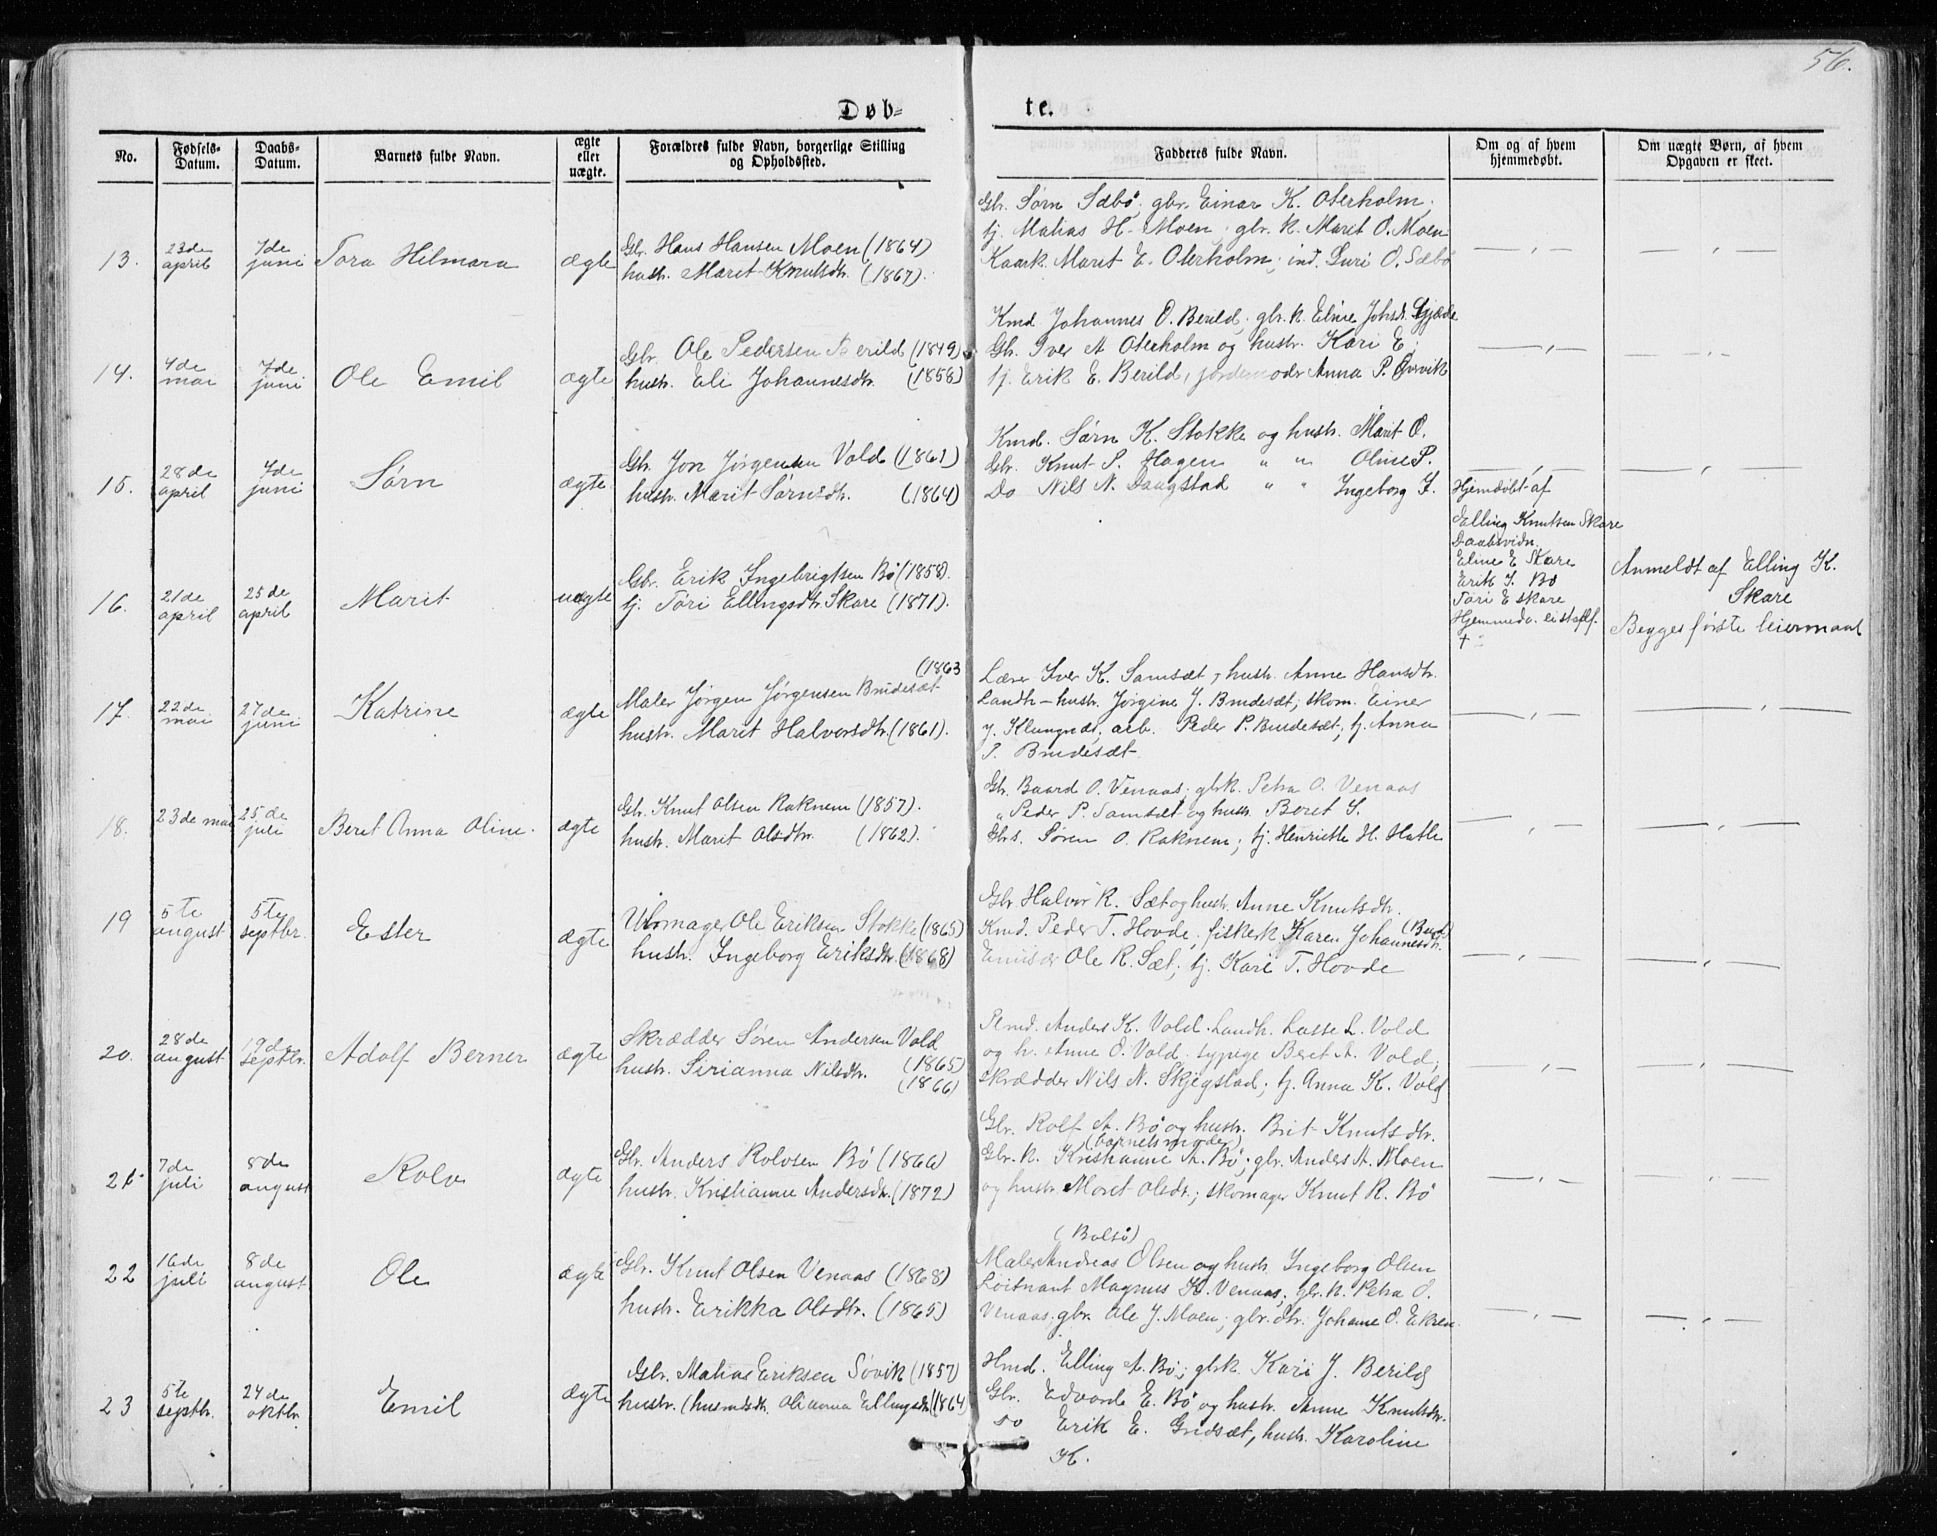 56.
Døb=
te.
No.
Fødsels-
Datum.
Daabs-
Datum.
Barnets fulde Navn.
ægte
eller
uægte.
Forældres fulde Navn, borgerlige Stilling
og Opholdssted.
Fadderes fulde Navn.
Om og af hvem
hjemmedøbt.
Om uægte Børn, af hvem
Opgaven er skeet.
13.
23de
april
7de
juni
Tora Hilmara
ægte
Gbr. Hans Hansen Moen (1864)
hustr. Marit Knutsdtr. (1867).
Gbr. Sørn Sæbø; gbr. Einar K. Oterholm.
tj. Matias H. Moen; gbr. k. Marit O. Moen
Kaark. Marit E. Oterholm; ind. Guri O. Sæbø
14.
4de
mai
7de
juni
Ole Emil
ægte
Gbr. Ole Pedersen Berild (1849)
hustr. Eli Johannesdtr. (1858)
Kmd. Johannes O. Berild; gbr. k. Eline Johsdt.
Gbr. Iver A Oterholm og hustr. Kari E;
tj. Erik E. Berild, jordemoder Anna P.
15.
28de
april
7de
juni
Sørn
ægte
Gbr. Jon Jørgensen Vold (1861)
hustr. Marit Sørnsdtr. (1864)
Kmd. Sørn K. Stokke og hustr. Marit O.
Gbr. Knut P. Hagen " " Oline P.
Do Nils N. Daugstad " " Ingeborg I.
16.
21de
april
25de
april
Marit
uægte
Gbr. Erik Ingebrigtsen Bø (1858).
tj. Töri Ellingsdtr. Skare (1871).
Hjemdøbt af
Elling Knutsen Skare
Daabsvidn.
Eline E Skare
Erik I. Bø
Töri E Skare
Hjemmed.
†
Anmeldt af Elling K.
Skare
Begges første leiermaal
17.
22de
mai
27de
juni
Katrine
ægte
(1863
Maler Jørgen Jørgensen Brudesæt
hustr. Marit Halvorsdtr. (1861).
Lærer Iver K. Samsæt, hustr. Anne Hansdtr.
Landh - hustr. Jørgine J. Brudesæt; skom. Einer
J. Klungnæs; arb. Peder P. Brudesæt; tj. Anna
P. Brudesæt
18.
23de mai
25de
juli
Beret Anna Oline.
ægte
Gbr. Knut Olsen Raknem (1857).
hustr. Marit Olsdtr. (1862).
Gbr. Baard O. Venaas; gbrk. Petra O. Venaas
" Peder P. Samsæt og hustr. Beret S.
Gbrs. Søren O. Raknem; tj. Henriette H. Hatle
19
5te
august
5te
septbr.
Ester
ægte
Urmager Ole Eriksen Stokke (1865)
hustr. Ingeborg Eriksdtr. (1868)
Gbr Halvor R. Sæt og hustr. Anne Knutsdtr.
(Bud)
Kmd. Peder T. Hovde; fiskerk Karen Johannesdtr.
Emisær Ole R. Sæt; tj. Kari T. Hovde
20.
28de
august
19de
septbr.
Adolf Berner
ægte
Skrædder Søren Andersen Vold
(1865)
hustr. Sirianna Nilsdtr.
(1866)
Anders K. Vold. Landh. Lasse L. Vold
og h. Anne O. Vold. sypige Beret A. Vold;
skrædder Nils N. Skjegstad; tj. Anna K. Vold
21.
7de
juli
8de
august
Rolv
ægte
Gbr. Anders Rolvsen Bø (1866)
hustr. Kristianne Andersdtr. (1872)
Gbr. Rolf A. Bø og hustr. Brit Knutsdtr.
(barnets moder)
Gbr. k. Kristianne A. Bø; gbr. Anders A. Moen
og hustr. Maret Olsdtr.; skomager Knut R. Bø
22
16de
juli
8de
august
Ole
ægte
Gbr. Knut Olsen Venaas (1868)
hustr. Erikka Olsdtr. (1865)
(Bolsø)
Maler Andreas Olsen og hustr. Ingeborg Olsen
Løitnant Magnus K. Venaas; gbr. k. Petra O.
Venaas; gbr. Ole J. Moen; gbr. dtr. Johanne O. Ekren
23
5te
septbr.
24de
oktbr.
Emil
ægte
Gbr. Matias Eriksen Søvik (1857)
hustr. (husmdsdtr. Olianna Ellingsdtr. (1864)
Hmd. Elling A. Bø; gbrk. Kari J. Berild
Gbr. Edvard E. Bø og hustr. Anne Knutsdtr.
Do Erik E. Gridsæt, hustr. Karoline
K.